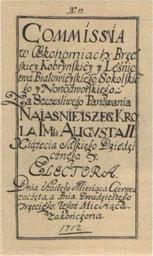 No 13
COMMISSIA
w Œkonomiach Brze
skiey Kobrynskiey y Lesnic
twa Białowieyskiego Sokolskie
y Nowodworskiego
Za Szczesliwego Panowania
NAIASNIEISZEG KRO
LA IMci AUGUSTA II
Xiązecia Saskiego Dziedzi
cznego y
ELECTORA.
Dnia Szostego Miesiąca Czerw
zaczęta, a Dnia Dwudziestego
Trzeciego: Tegoż Miesiąca
Zakończona
1712